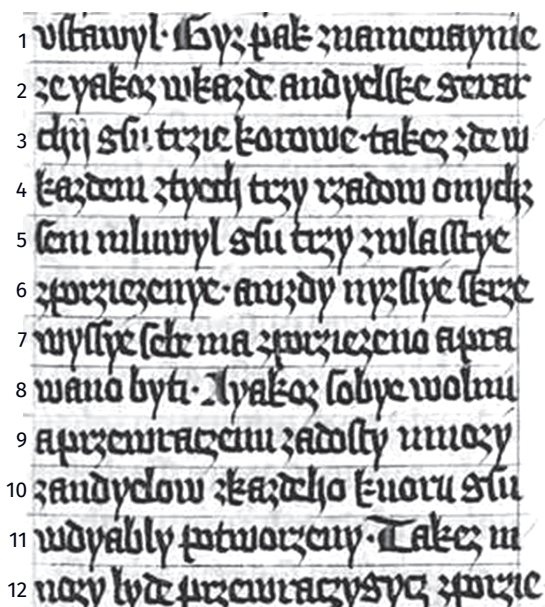 1 vstawyl· Gyz pak znamenaynie
2 ze yakoz wkazde andyelske gerar
3 chij gsu· trzie korowe· takez zde w
4 kazdem ztyech trzy rzadow onychz
5 sem mluwyl gsu trzy zwlasstye
6 zporziezenye· awzdy nyzssye skrze
7 wyssye sebe ma zporziezeno apra
8 wano byti· A yakoz sobye wolnu
9 aprzewracenu zadosty mnozy
10 zandyelow zkazdeho kuoru gsu
11 wdyably potworzeny· Takez m
12 nozy lyde przewraczygycz zporzie